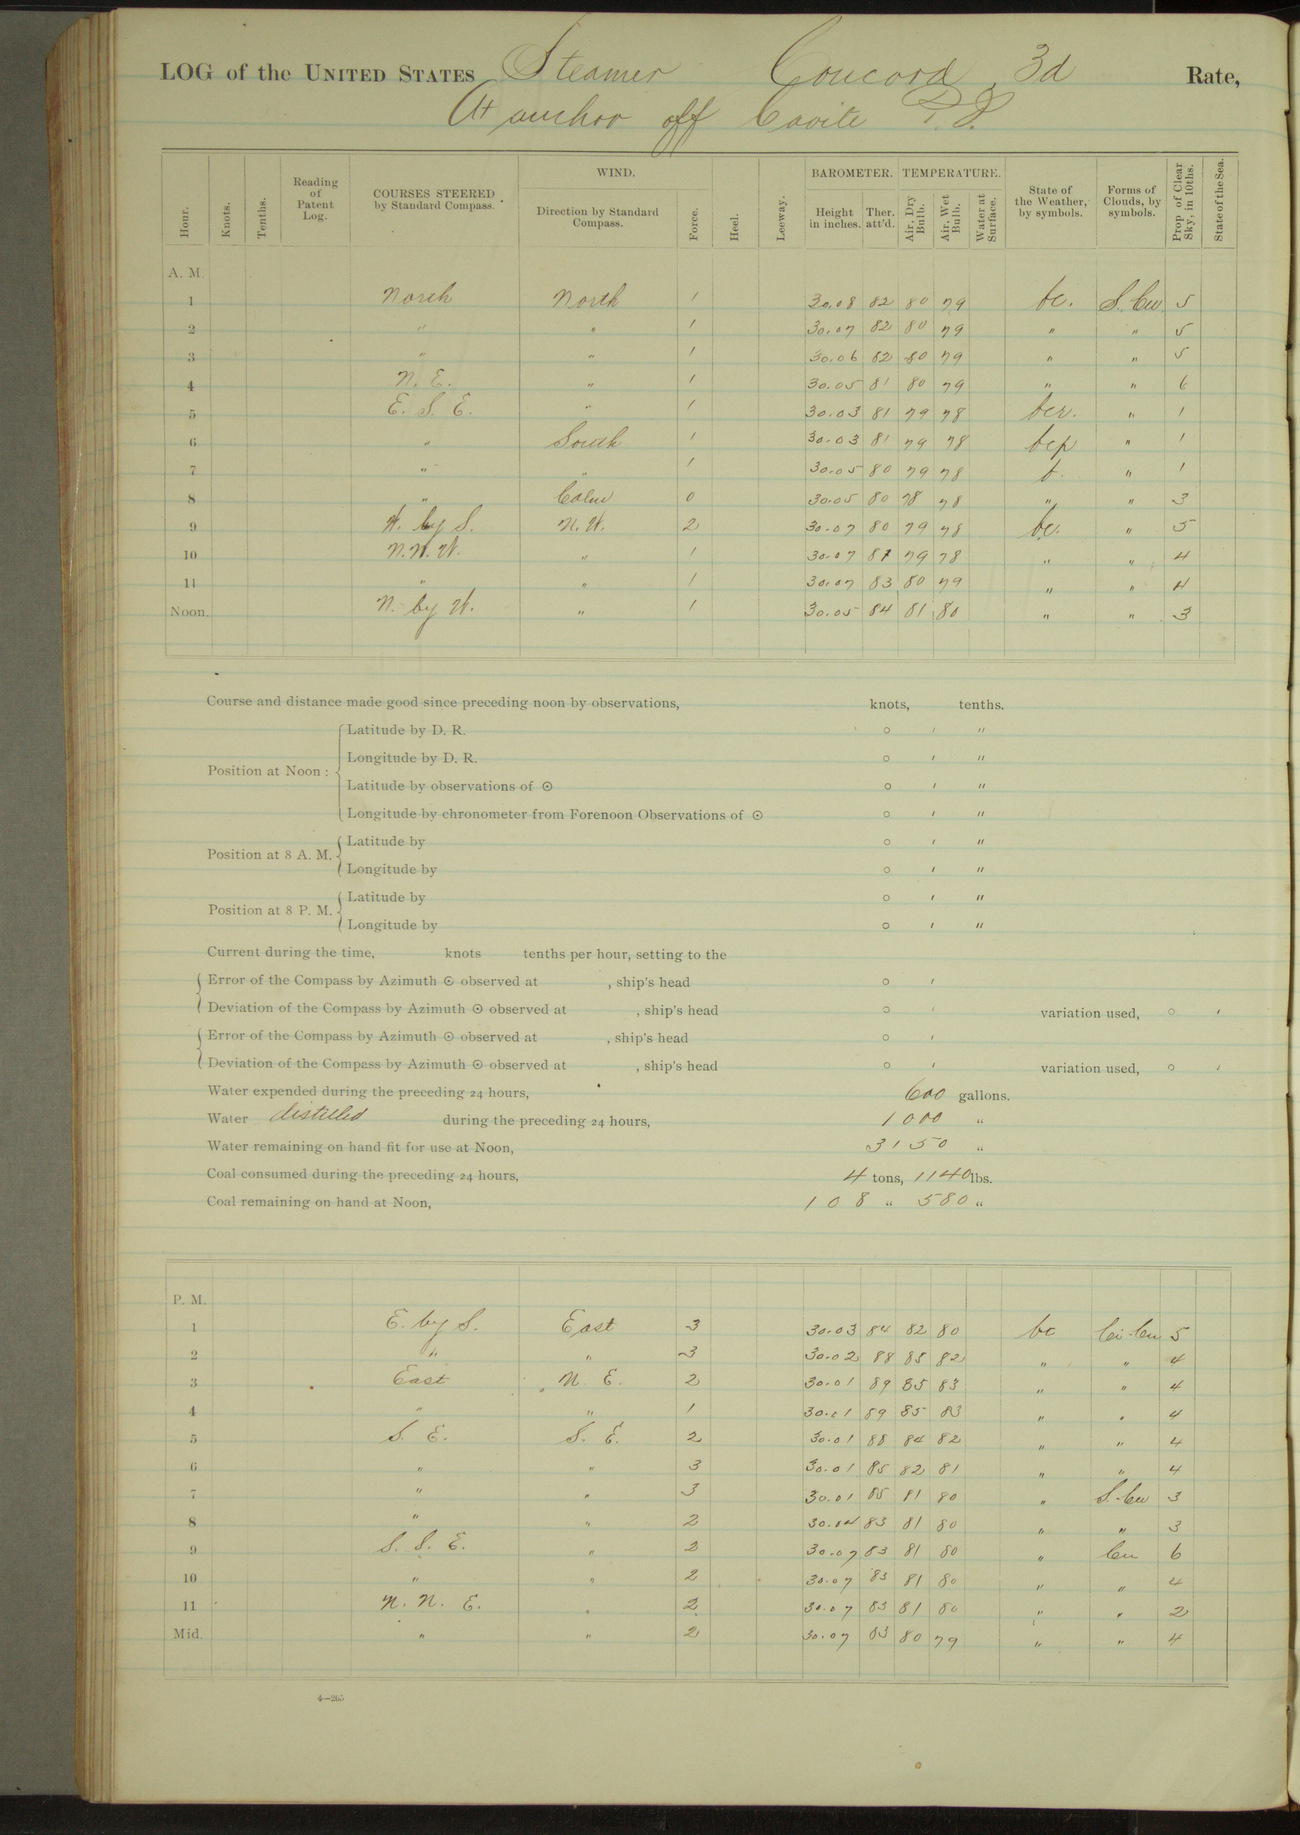 LOG of the UNITED STATES Steamer Concord, 3d Rate,
At anchor off Cavite P.I.
Hour. Knots. Tenths. Reading of Patent Log. COURSES STEERED by Standard Compass. WIND. Direction by Standard Compass. Force. Heel. Leeway. BAROMETER. Height in inches. Ther. att'd. TEMPERATURE. Air, Dry Bulb. Air, Wet Bulb. Water at Surface. State of the Weather, by symbols. Forms of Clouds, by symbols. Prop. of Clear Sky, in 10ths. State of the Sea.
A. M.
1 North North 1 30.08 82 80 79 bc. S. Cu. 5
2 " " 1 30.07 82 80 79 " " 5
3 " " 1 30.06 82 80 79 " " 5
4 N. E. " 1 30.05 81 80 79 " " 6
5 E. S. E. " 1 30.03 81 79 78 bcr. " 1
6 " South 1 30.03 81 79 78 bcp " 1
7 " " 1 30.05 80 79 78 " 1
8 " Calm 0 30.05 80 78 78 " " 3
9 W. by S. N. W. 2 30.07 80 79 78 bc. " 5
10 N. N. W. " 1 30.07 81 79 78 " " 4
11 " " 1 30.07 83 80 79 " " 4
Noon. N. by W. " 1 30.05 84 81 80 " " 3
Course and distance made good since preceding noon by observations, knots, tenths.
Position at Noon :
Latitude by D. R. ○ ' "
Longitude by D. R. ○ ' "
Latitude by observations of ⊙ ○ ' "
Longitude by chronometer from Forenoon Observations of ⊙ ○ ' "
Position at 8 A. M.
Latitude by ○ ' "
Longitude by ○ ' "
Position at 8 P. M.
Latitude by ○ ' "
Longitude by ○ ' "
Current during the time, knots tenths per hour, setting to the
Error of the Compass by Azimuth ⊙ observed at , ship's head ○ '
Deviation of the Compass by Azimuth ⊙ observed at , ship's head ○ ' variation used, ○ '
Error of the Compass by Azimuth ⊙ observed at , ship's head ○ '
Deviation of the Compass by Azimuth ⊙ observed at , ship's head ○ ' variation used, ○ '
Water expended during the preceding 24 hours, 600 gallons.
Water distilled during the preceding 24 hours, 1000 "
Water remaining on hand fit for use at Noon, 3150 "
Coal consumed during the preceding 24 hours, 4 tons, 1140 lbs.
Coal remaining on hand at Noon, 108 " 580 "
P. M.
1 E. by S. East 3 30.03 84 82 80 bc Ci-Cu 5
2 " " 3 30.02 88 85 82 " " 4
3 East N. E. 2 30.01 89 85 83 " " 4
4 " " 1 30.01 89 85 83 " " 4
5 S. E. S. E. 2 30.01 88 84 82 " " 4
6 " " 3 30.01 85 82 81 " " 4
7 " " 3 30.01 85 81 80 " S. Cu 3
8 " " 2 30.04 83 81 80 " " 3
9 S. S. E. " 2 30.07 83 81 80 " Cu 6
10 " " 2 30.07 83 81 80 " " 4
11 N. N. E. " 2 30.07 83 81 80 " " 2
Mid. " " 2 30.07 83 80 79 " " 4
4—265